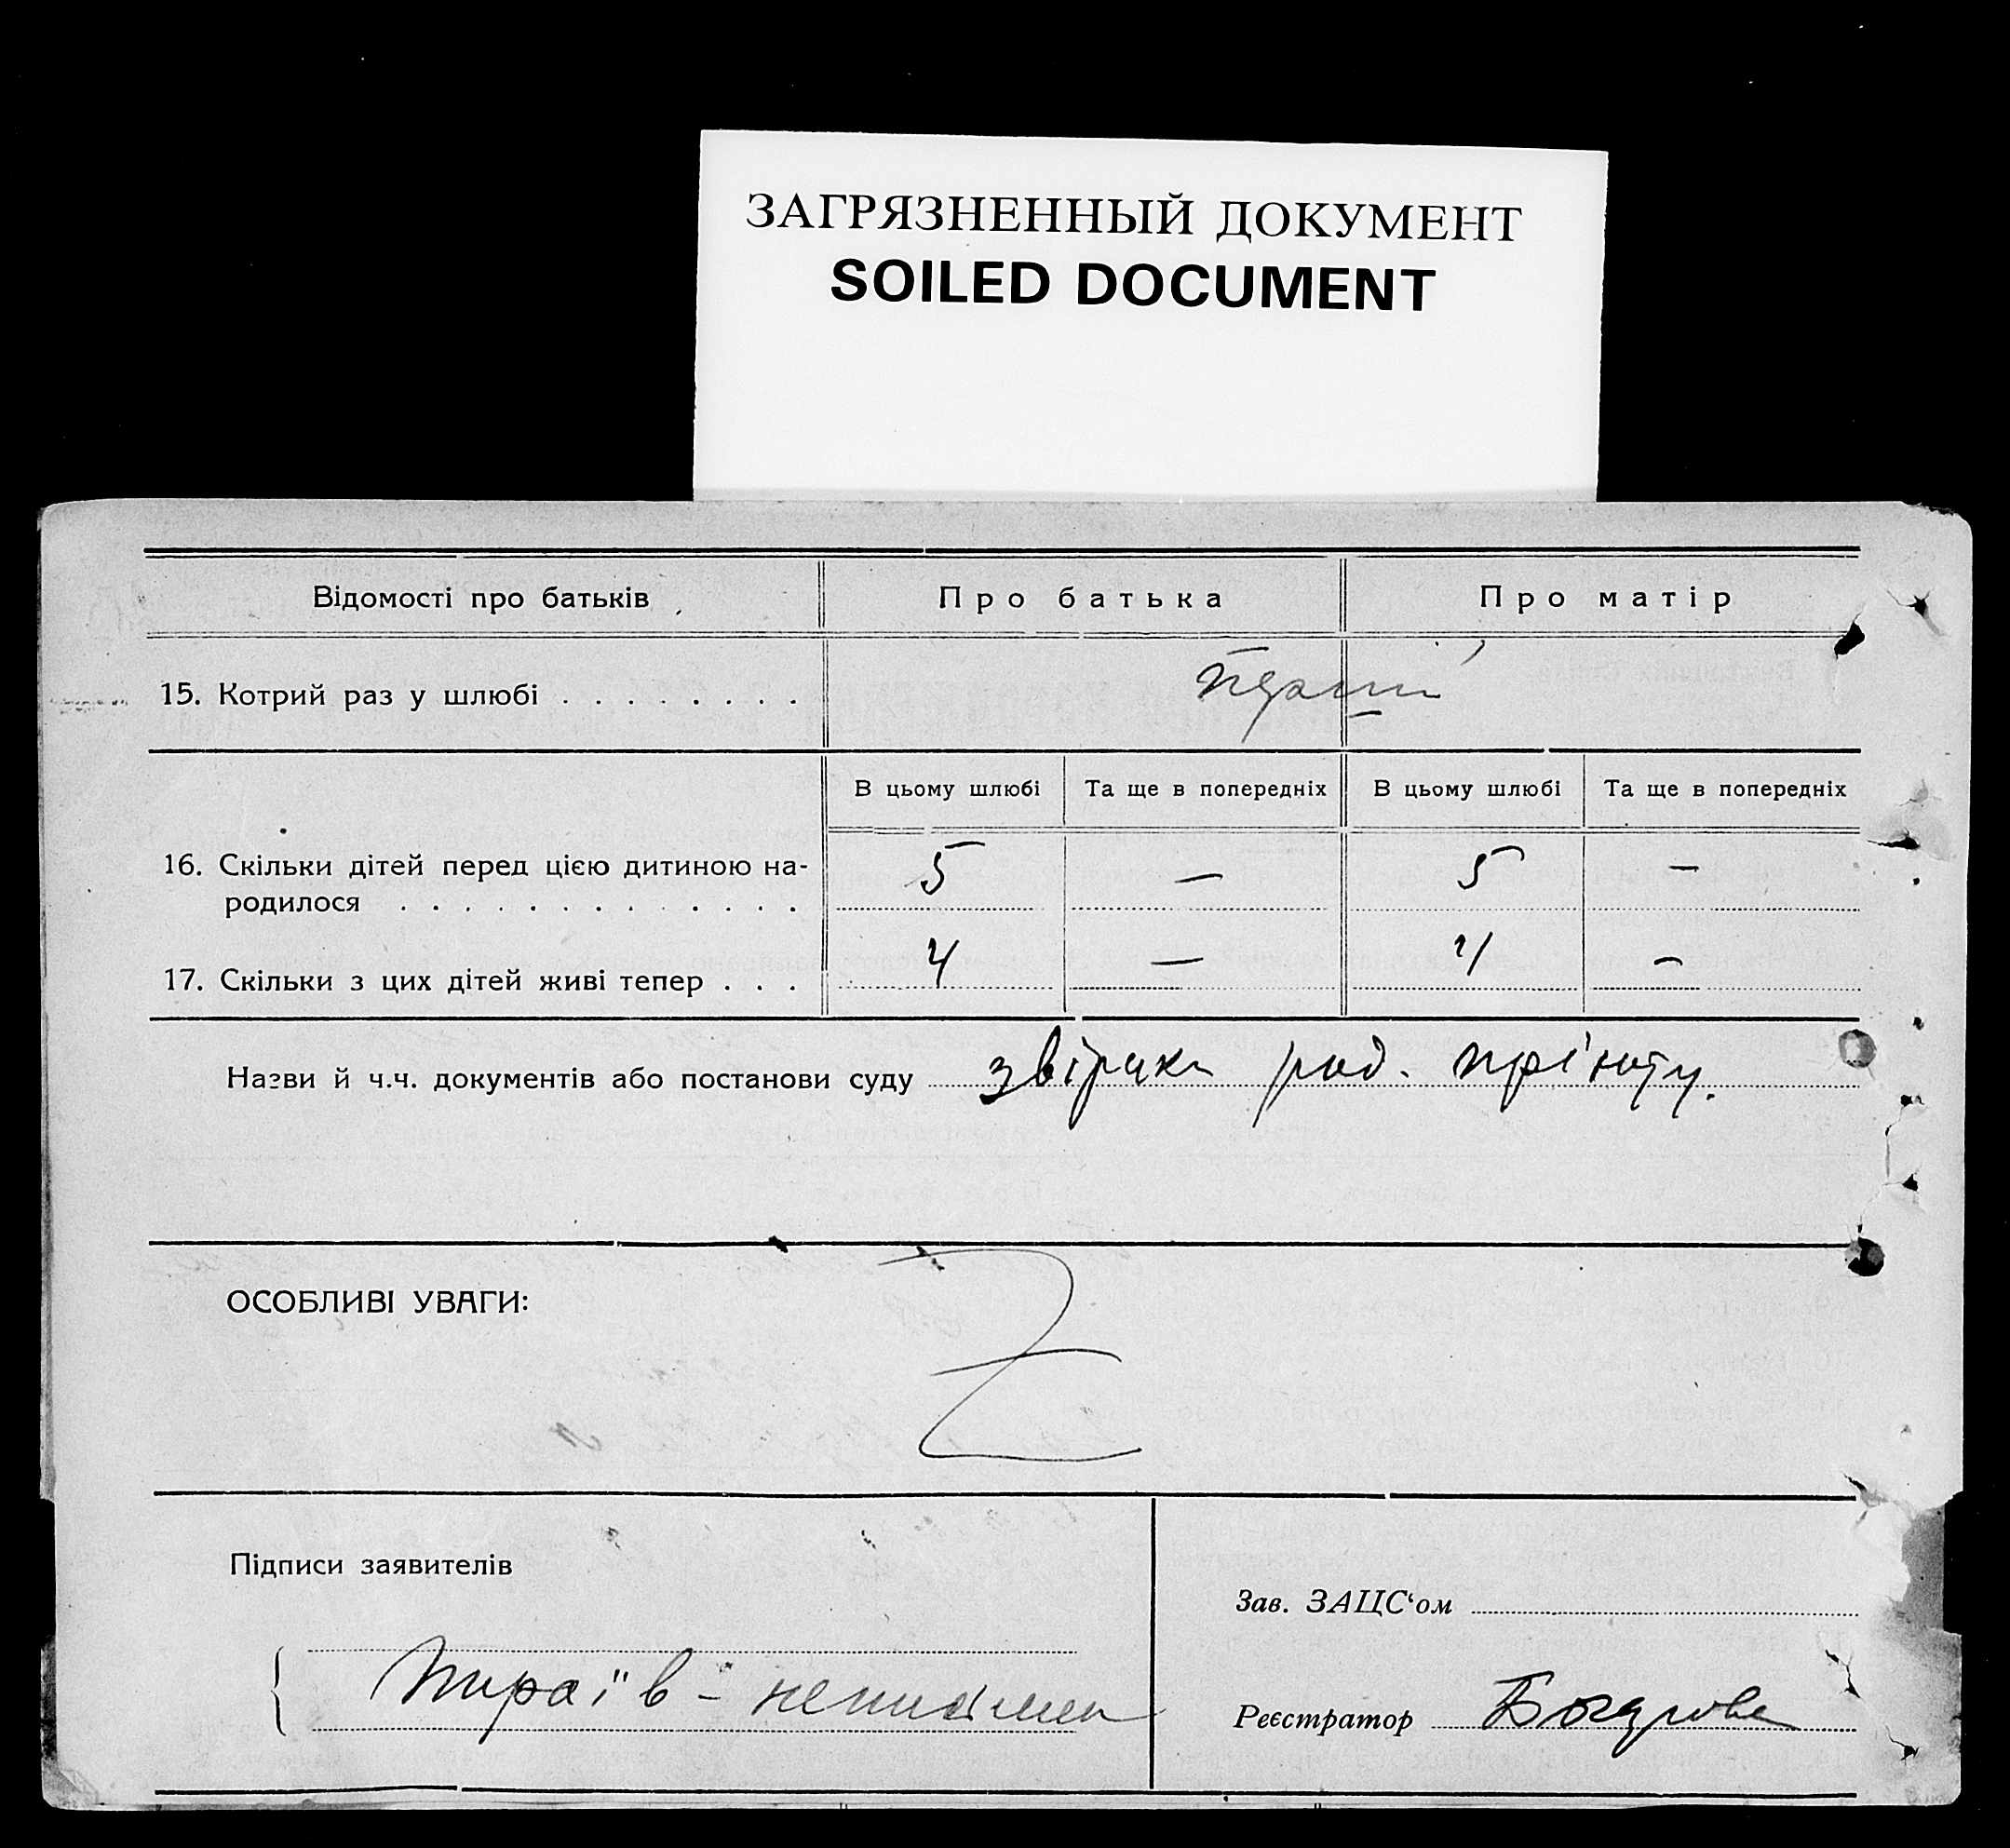 ЗАГРЯЗНЕННЫЙ ДОКУМЕНТ
SOILED DOCUMENT
Відомості про батьків Про батька Про матір
15. Котрий раз у шлюбі . . . . . . . .
В цьому шлюбі Та ще в попередніх В цьому шлюбі Та ще в попередніх
16. Скільки дітей перед цією дитиною на- 5 — 5 —
родилося . . . . . . . . . . . . .
17. Скільки з цих дітей живі тепер . . . 4 — 4 —
Назви й ч.ч. документів або постанови суду род.
ОСОБЛИВІ УВАГИ:
Підписи заявителів
Зав. ЗАЦС‘ом
Реєстратор